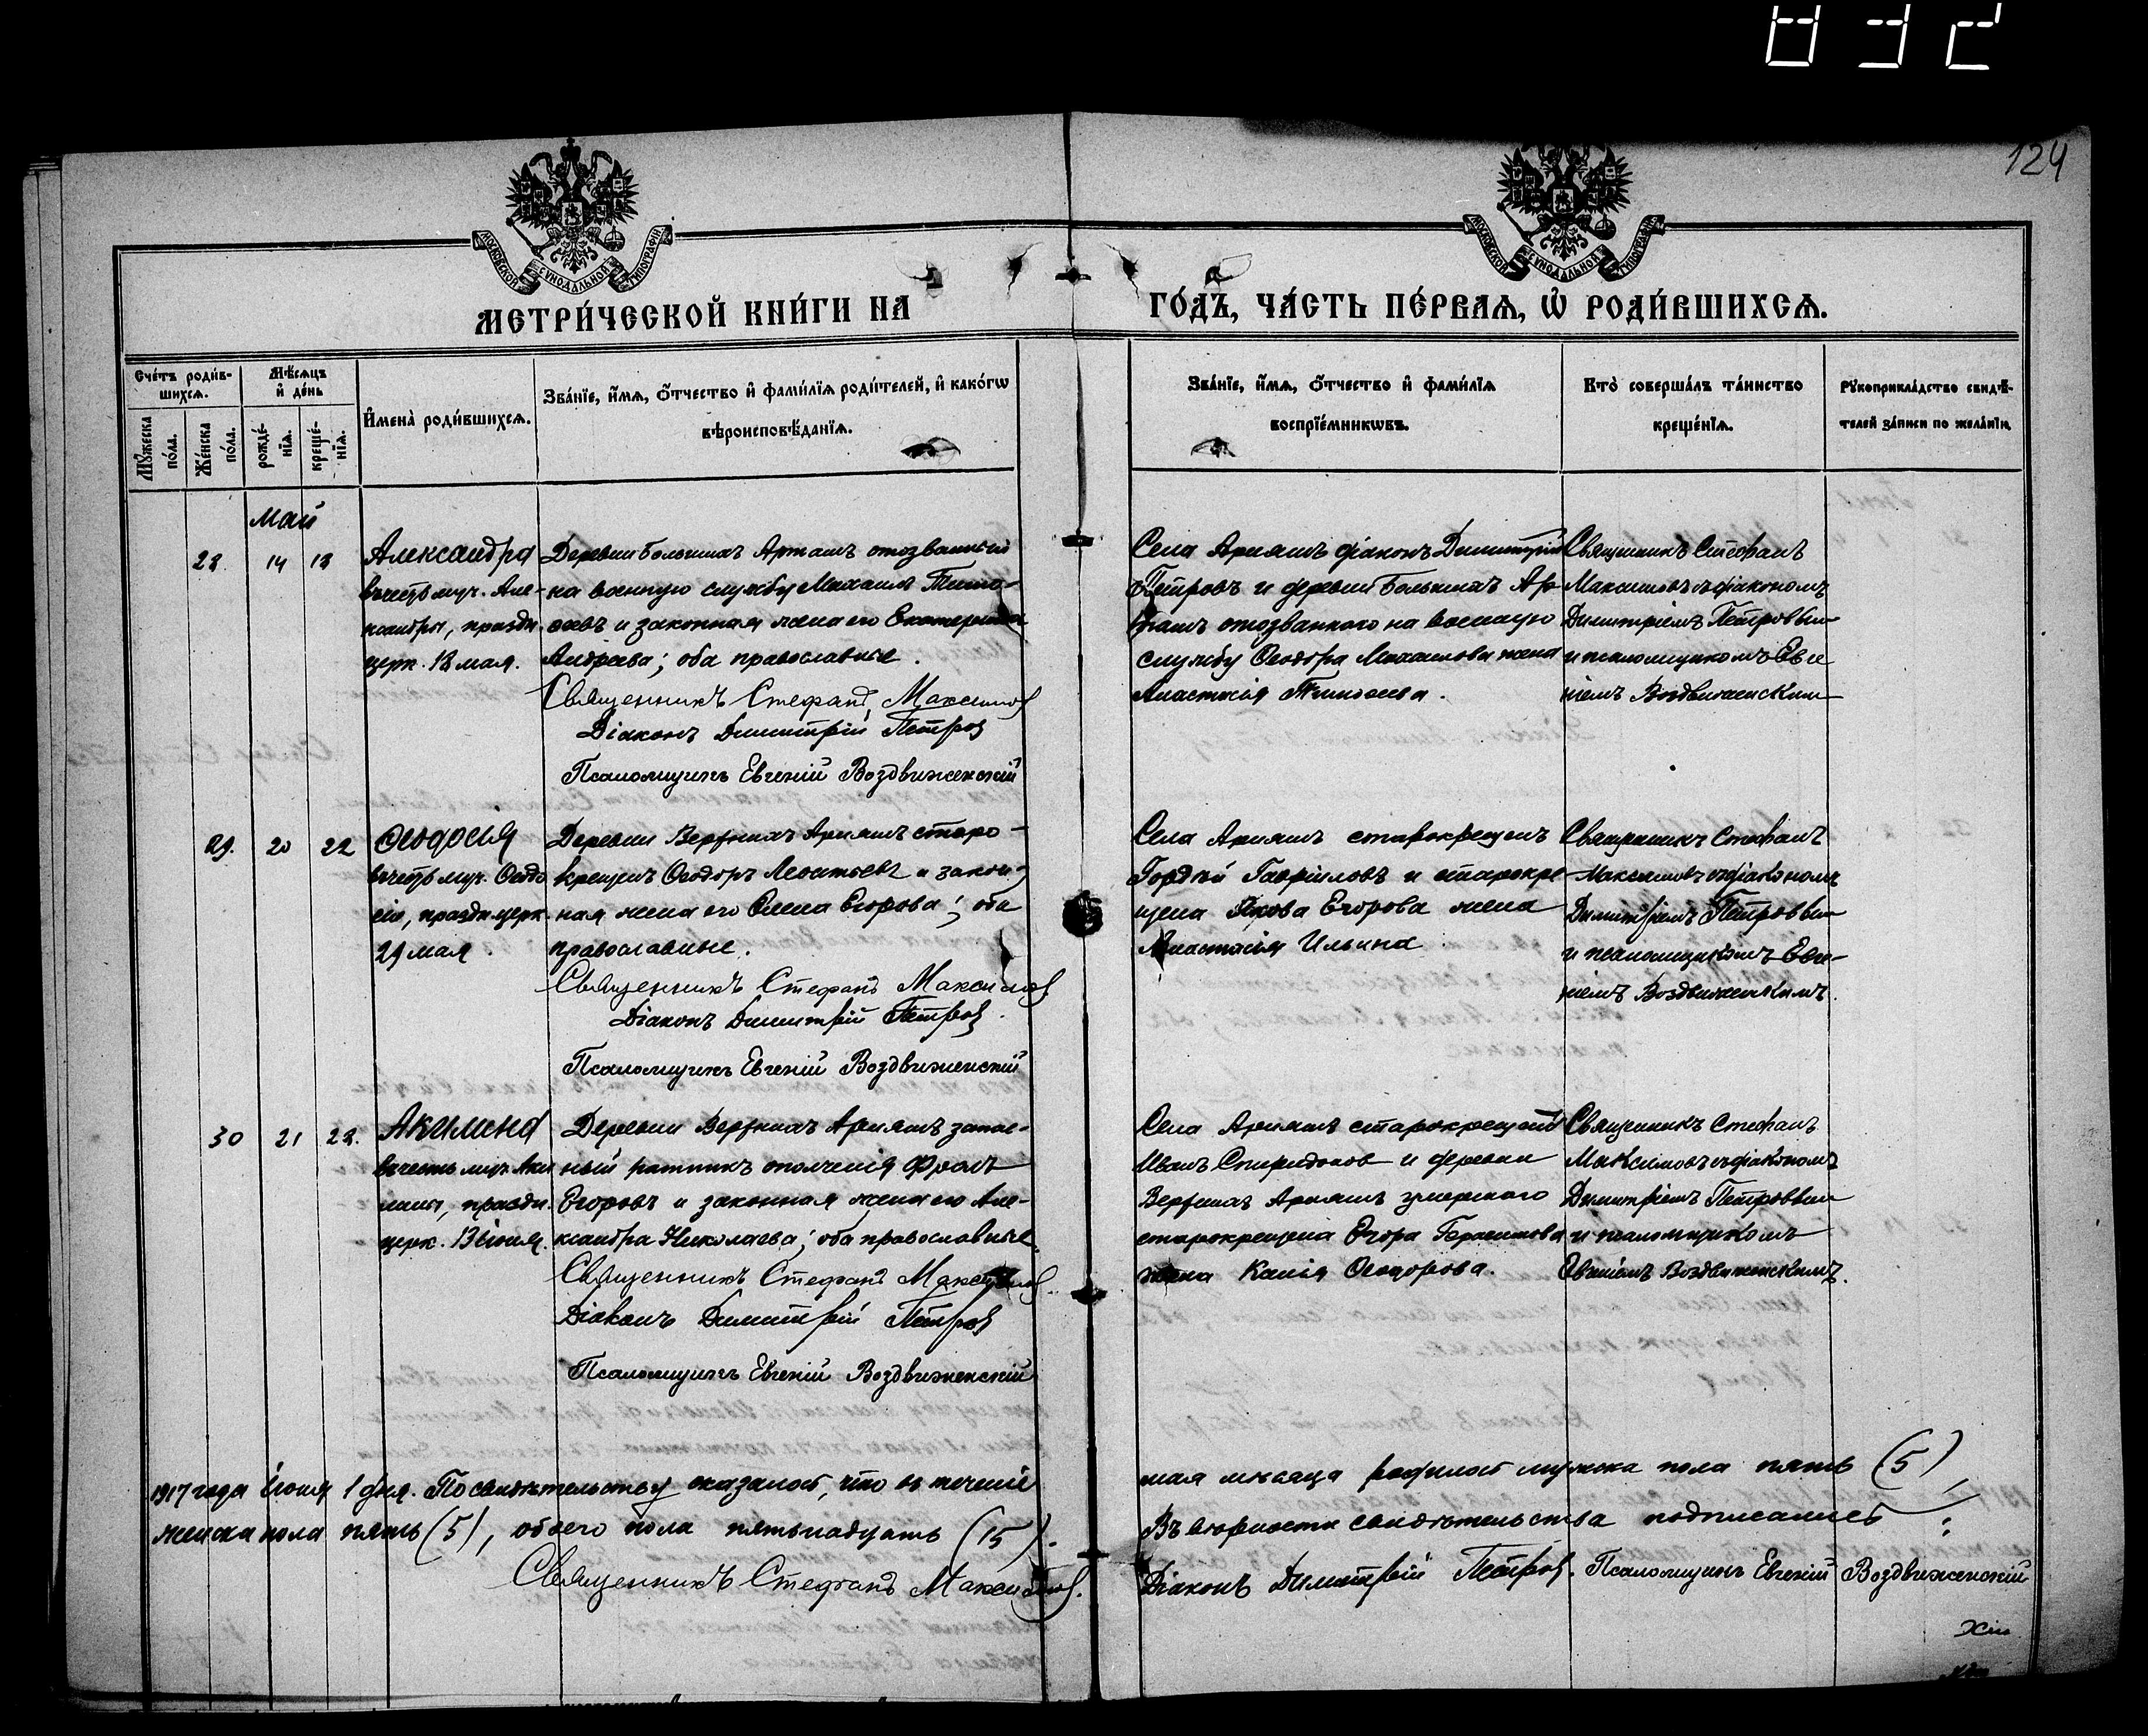 832
124
МОСКОВСКОЙ СѴНОДАЛЬНОЙ ТИПОГРАФІИ
МОСКОВСКОЙ СѴНОДАЛЬНОЙ ТИПОГРАФІИ
МЕТРИ́ЧЕСКОЙ КНИ́ГИ НА
ГО́ДЪ, ЧА́СТЬ ПЕ́РВАѦ, Ѡ҆ РОДИ́ВШИХСѦ.
Сче́тъ роди́в-
шихсѧ.
Мѣ́сѧцъ
и҆ де́нь
Мꙋ́жеска
по́ла.
Же́нска
по́ла.
рожде́-
нїѧ.
креще́-
нїѧ.
И҆мена̀ роди́вшихсѧ.
Зва́нїе, и҆́мѧ, ѻ҆́тчество и҆ фами́лїѧ роди́телей, и҆ како́гѡ
вѣроисповѣ́данїѧ.
Зва́нїе, и҆́мѧ, ѻ҆́тчество и҆ фами́лїѧ
воспрїе́мникѡвъ.
Кто̀ соверша́лъ та́инство
креще́нїѧ.
Рꙋкоприкла́дство свидѣ́-
телей за́писи по жела́нїю.
Май
28. 14 18
Александра
въ честь муч. Але-
ксандры, праздн.
церк. 18 мая.
Деревни Большихъ Арташъ отозванный
на военную службу Михаилъ Тимо-
ѳеевъ и законная жена его Екатерина
Андреева; оба православные.
Священникъ Стефанъ Максимов
Діаконъ Димитрій Петров
Псаломщикъ Евгеній Воздвиженскій
Села Аришъ діаконъ Димитрій
Петровъ и деревни Большихъ Ар-
ташъ отозваннаго на военную
службу Ѳеодора Михаилова жена
Анастасія Тимоѳеева.
Священникъ Стефанъ
Максимовъ съ діакономъ
Димитріемъ Петровым
и псаломщикомъ Евге
ніемъ Воздвиженским
29. 20 22
Ѳеодосія
въ честь муч. Ѳеодо
сіи, праздн. церк.
29 мая.
Деревни Верхнихъ Аришъ старо-
крещенъ Ѳеодоръ Леонтьевъ и закон-
ная жена его Елена Егорова; оба
православные.
Священникъ Стефанъ Максимов
Діаконъ Димитрій Петров.
Псаломщикъ Евгеній Воздвиженскій
Села Аришъ старокрещенъ
Гордѣй Гавріиловъ и старокре
щена Якова Егорова жена
Анастасія Ильина.
Священникъ Стефанъ
Максимовъ съ діакономъ
Димитріемъ Петровым
и псаломщикомъ Евге-
ніемъ Воздвиженскимъ.
30 21 22.
Акилина
въ честь муч. Аки
лины, праздн.
церк. 13 іюня.
Деревни Верхнихъ Аришъ запас-
ный ратникъ ополченія Фролъ
Егоровъ и законная жена его Але-
ксандра Николаева; оба православные.
Священникъ Стефанъ Максимов
Діаконъ Димитрій Петров
Псаломщикъ Евгеній Воздвиженскій
Села Аришъ старокрещенъ
Иванъ Спиридонов и деревни
Верхнихъ Аришъ умершаго
старокрещена Егора Герасимова
жена Ксенія Ѳеодорова.
Священникъ Стефанъ
Максимовъ съ діакономъ
Димитріемъ Петровым
и псаломщикомъ
Евгеніемъ Воздвиженскимъ.
1917 года іюня 1 дня. По свидѣтельству оказалось, что въ теченіе
мая мѣсяца родилось мужска пола пять (5),
женска пола пять (5), обоего пола пятьнадцать (15).
Въ вѣрности свидѣтельства подписались:
Священникъ Стефанъ Максимов.
Діаконъ Димитрій Петров. Псаломщикъ Евгеній Воздвиженскій